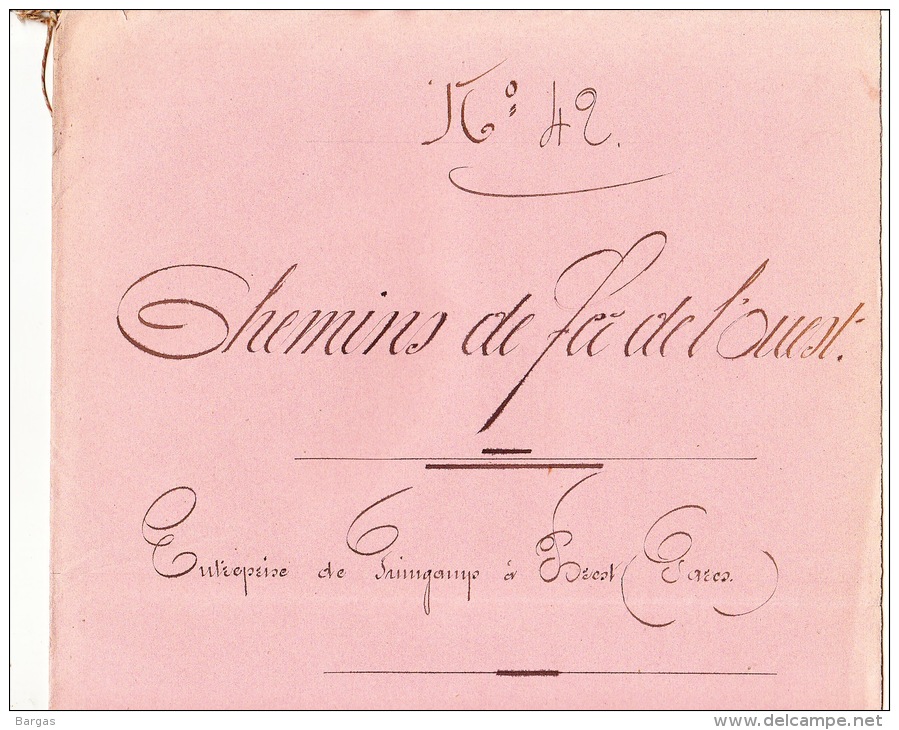 N° 42.
Chemins de fer de l'Ouest.
Entreprise de Guingamp à Brest (Gares.)
Bargas
www.delcampe.net